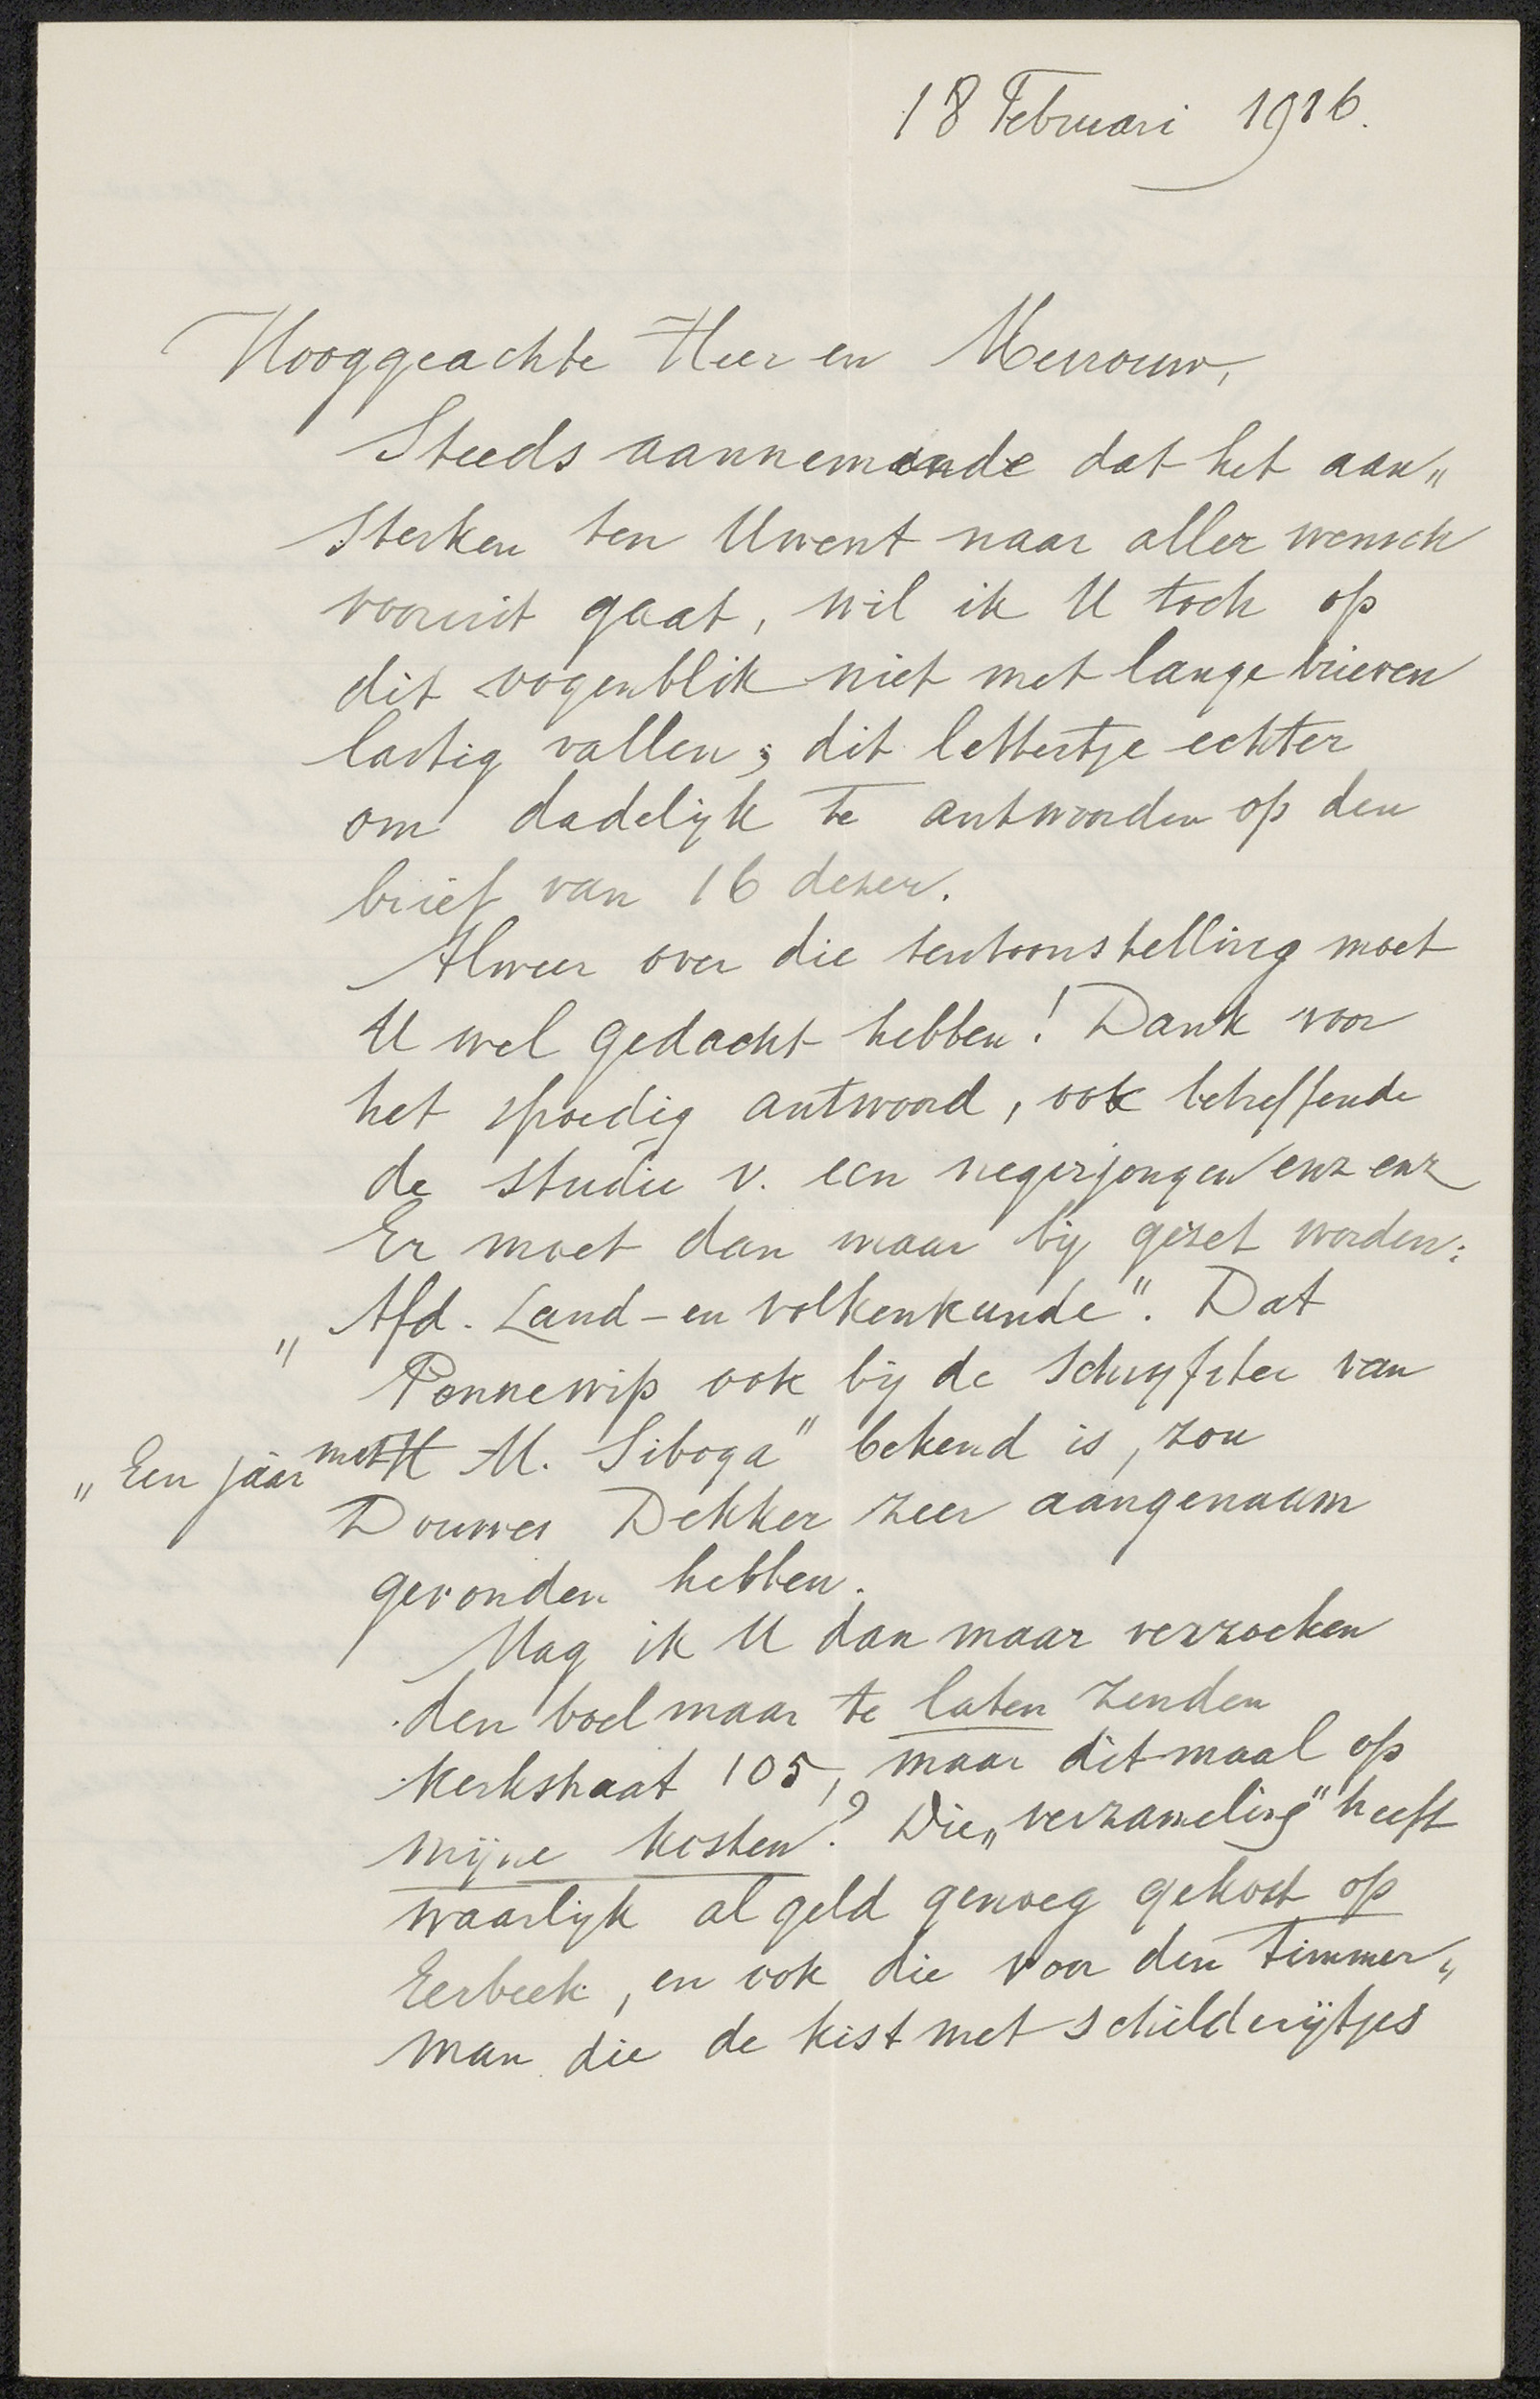 18 Februari 1916.
Hooggeachte Heer en Mevrouw,
Steeds aannemende dat het aan„
sterken ten Uwent naar aller wensch
vooruit gaat, wil ik U toch op
dit oogenblik niet met lange brieven
lastig vallen; dit lettertje echter
om dadelijk te antwoorden op den
brief van 16 dezer.
Alweer over die tentoonstelling moet
U wel gedacht hebben! Dank voor
het spoedig antwoord, ook betreffende
de studie v. een negerjongen enz enz
Er moet dan maar bij gezet worden:
„Afd. Land-en volkenkunde". Dat
Pennewip ook bij de schrijfster van
„Een jaar met H M. Siboga" bekend is, zou
Douwes Dekker zeer aangenaam
gevonden hebben.
Mag ik U dan maar verzoeken
den boel maar te laten zenden
Kerkstraat 105, maar ditmaal op
mijne kosten? Die „verzameling" heeft
waarlijk al geld genoeg gekost op
Eerbeek, en ook die voor den timmer„
man die de kist met schilderijtjes